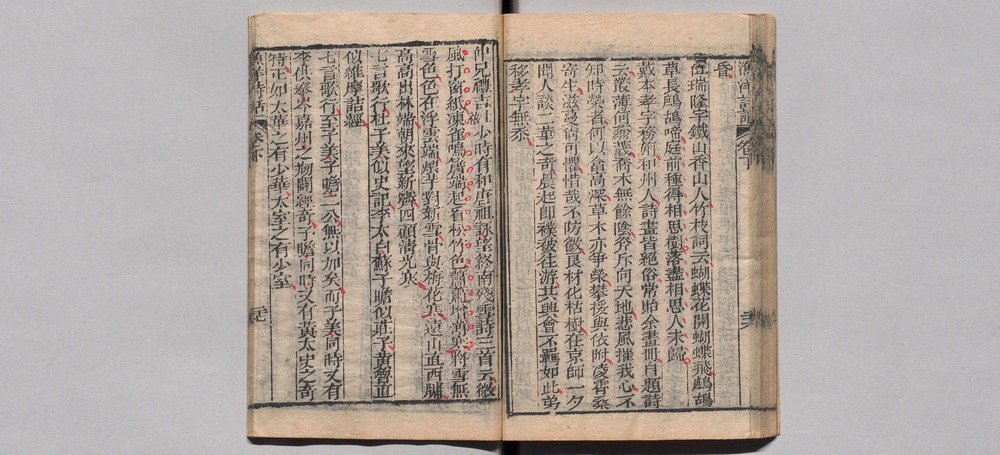 漁洋詩話 卷下
昏
任瑞隆字鐵山香山人竹枝詞云蝴蝶花開蝴蝶飛鷓鴣
草長鷓鴣啼庭前種得相思樹落盡相思人未歸
戴本孝字務旃和州人詩畫皆絕俗常貽余畫冊自題詩
云叢薄何蓊薆喬木無餘陰斧斤向天地悲風摧我心不
知時榮者何以答高深草木亦爭榮攀援與依附凌霄桑
寄生滋蔓尚可懼惜哉不防微良材化枯樹在京師一夕
聞人談二華之奇晨起即襆被往游其興會不羈如此弟
移孝字無忝
仲兄禮吉少時有和唐祖詠望終南殘雪詩三首云微
風打窗紙凍雀鳴簷端起看松竹色蕭增清寒將雪無
雪色色在浮雲端煨芋對新雪貧與梅花寒遠山直西牖
高高出林端朝來望新霽四顧清光寒
七言歌行杜子美似史記李太白蘇子瞻似莊子黃魯直
似維摩詰經
七言歌行至子美子瞻二公無以加矣而子美同時又有
李供奉岑嘉州之刱闢經奇子瞻同時又有黃太史之奇
特正如太華之有少華太室之有少室
漁洋詩話 卷下